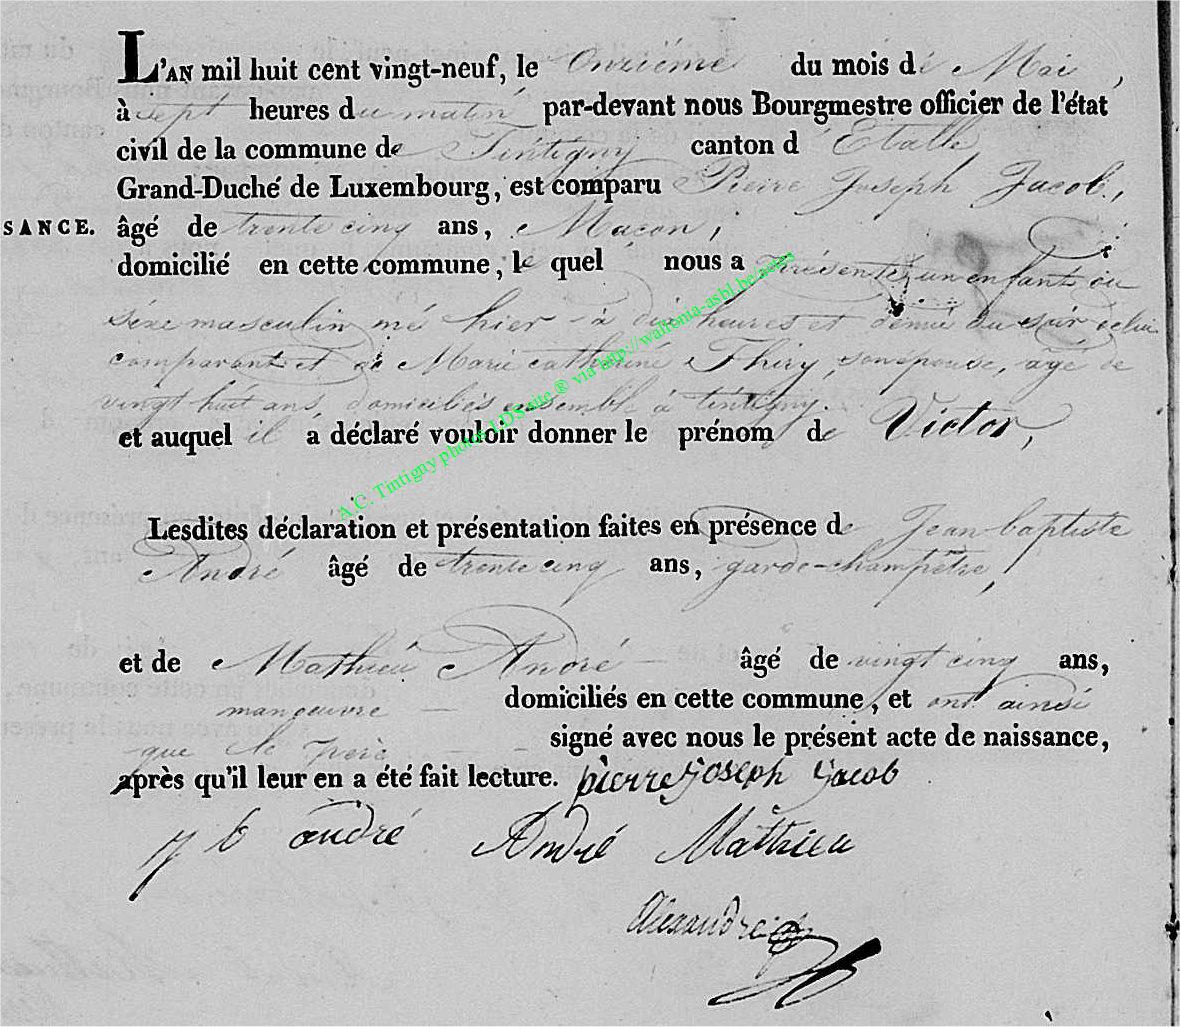 L'AN mil huit cent vingt-neuf, le Onzième du mois de Mai,
à sept heures du matin par-devant nous Bourgmestre officier de l'état
civil de la commune de Tintigny canton d'Etalle
Grand-Duché de Luxembourg, est comparu Pierre Joseph Jacob,
SANCE. âgé de trente cinq ans, Maçon,
domicilié en cette commune, le quel nous a présenté un enfant du
séxe masculin né hier à dix heures et demie du soir de lui
comparant et de Marie catherine Thiry, son epouse, agé de
vingt huit ans, domiciliés ensemble à tintigny.
et auquel il a déclaré vouloir donner le prénom de Victor,
Lesdites déclaration et présentation faites en présence de Jean baptiste
André âgé de trente cinq ans, garde-champêtre,
et de Mathieu André âgé de vingt cinq ans,
manœuvre domiciliés en cette commune, et ont ainsi
que le père signé avec nous le présent acte de naissance,
après qu'il leur en a été fait lecture. pierre joseph jacob
j b andré André Mathieu
Alexandre
A.C. Tintigny photos LDS site ® via http://wallonia-asbl.be/actes